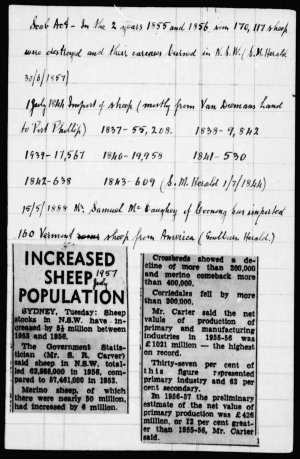 Scab Act - In the 2 years 1855 and 1856 some 176,117 sheep
were destroyed and their carcases burned in N.S.W. (S.M. Herald
30/6/1857)
1 July 1844 Import of sheep (mostly from Van Diemans Land
to Port Phillip) 1837-55,208. 1838-9,842
1839-17,567 1840-19,958 1841-530
1842-638 1843-609 (S.M. Herald 1/7/1844)
15/5/1888 Mr. Samuel McCaughey of Coonong has imported
160 Vermont sheep from America (Goulburn Herald.)
INCREASED
SHEEP 1957
July
POPULATION
SYDNEY, Tuesday: Sheep
stocks in N.S.W. have in-
creased by 5½ million between
1953 and 1956.
The Government Statis-
tician (Mr. S. R. Carver)
said sheep in N.S.W. total-
led 62,988,000 in 1956, com-
pared to 57,461,000 in 1953.
Merino sheep, of which
there were nearly 50 million,
had increased by 6 million.
Crossbreds showed a de-
cline of more than 200,000
and merino comeback more
than 400,000.
Corriedales fell by more
than 300,000.
Mr. Carter said the net
value of production of
primary and manufacturing
industries in 1955-56 was
£1021 million — the highest
on record.
Thirty-seven per cent of
this figure represented
primary industry and 63 per
cent secondary.
In 1956-57 the preliminary
estimate of the net value of
primary production was £426
million, or 12 per cent great-
er than 1955-56, Mr. Carter
said.